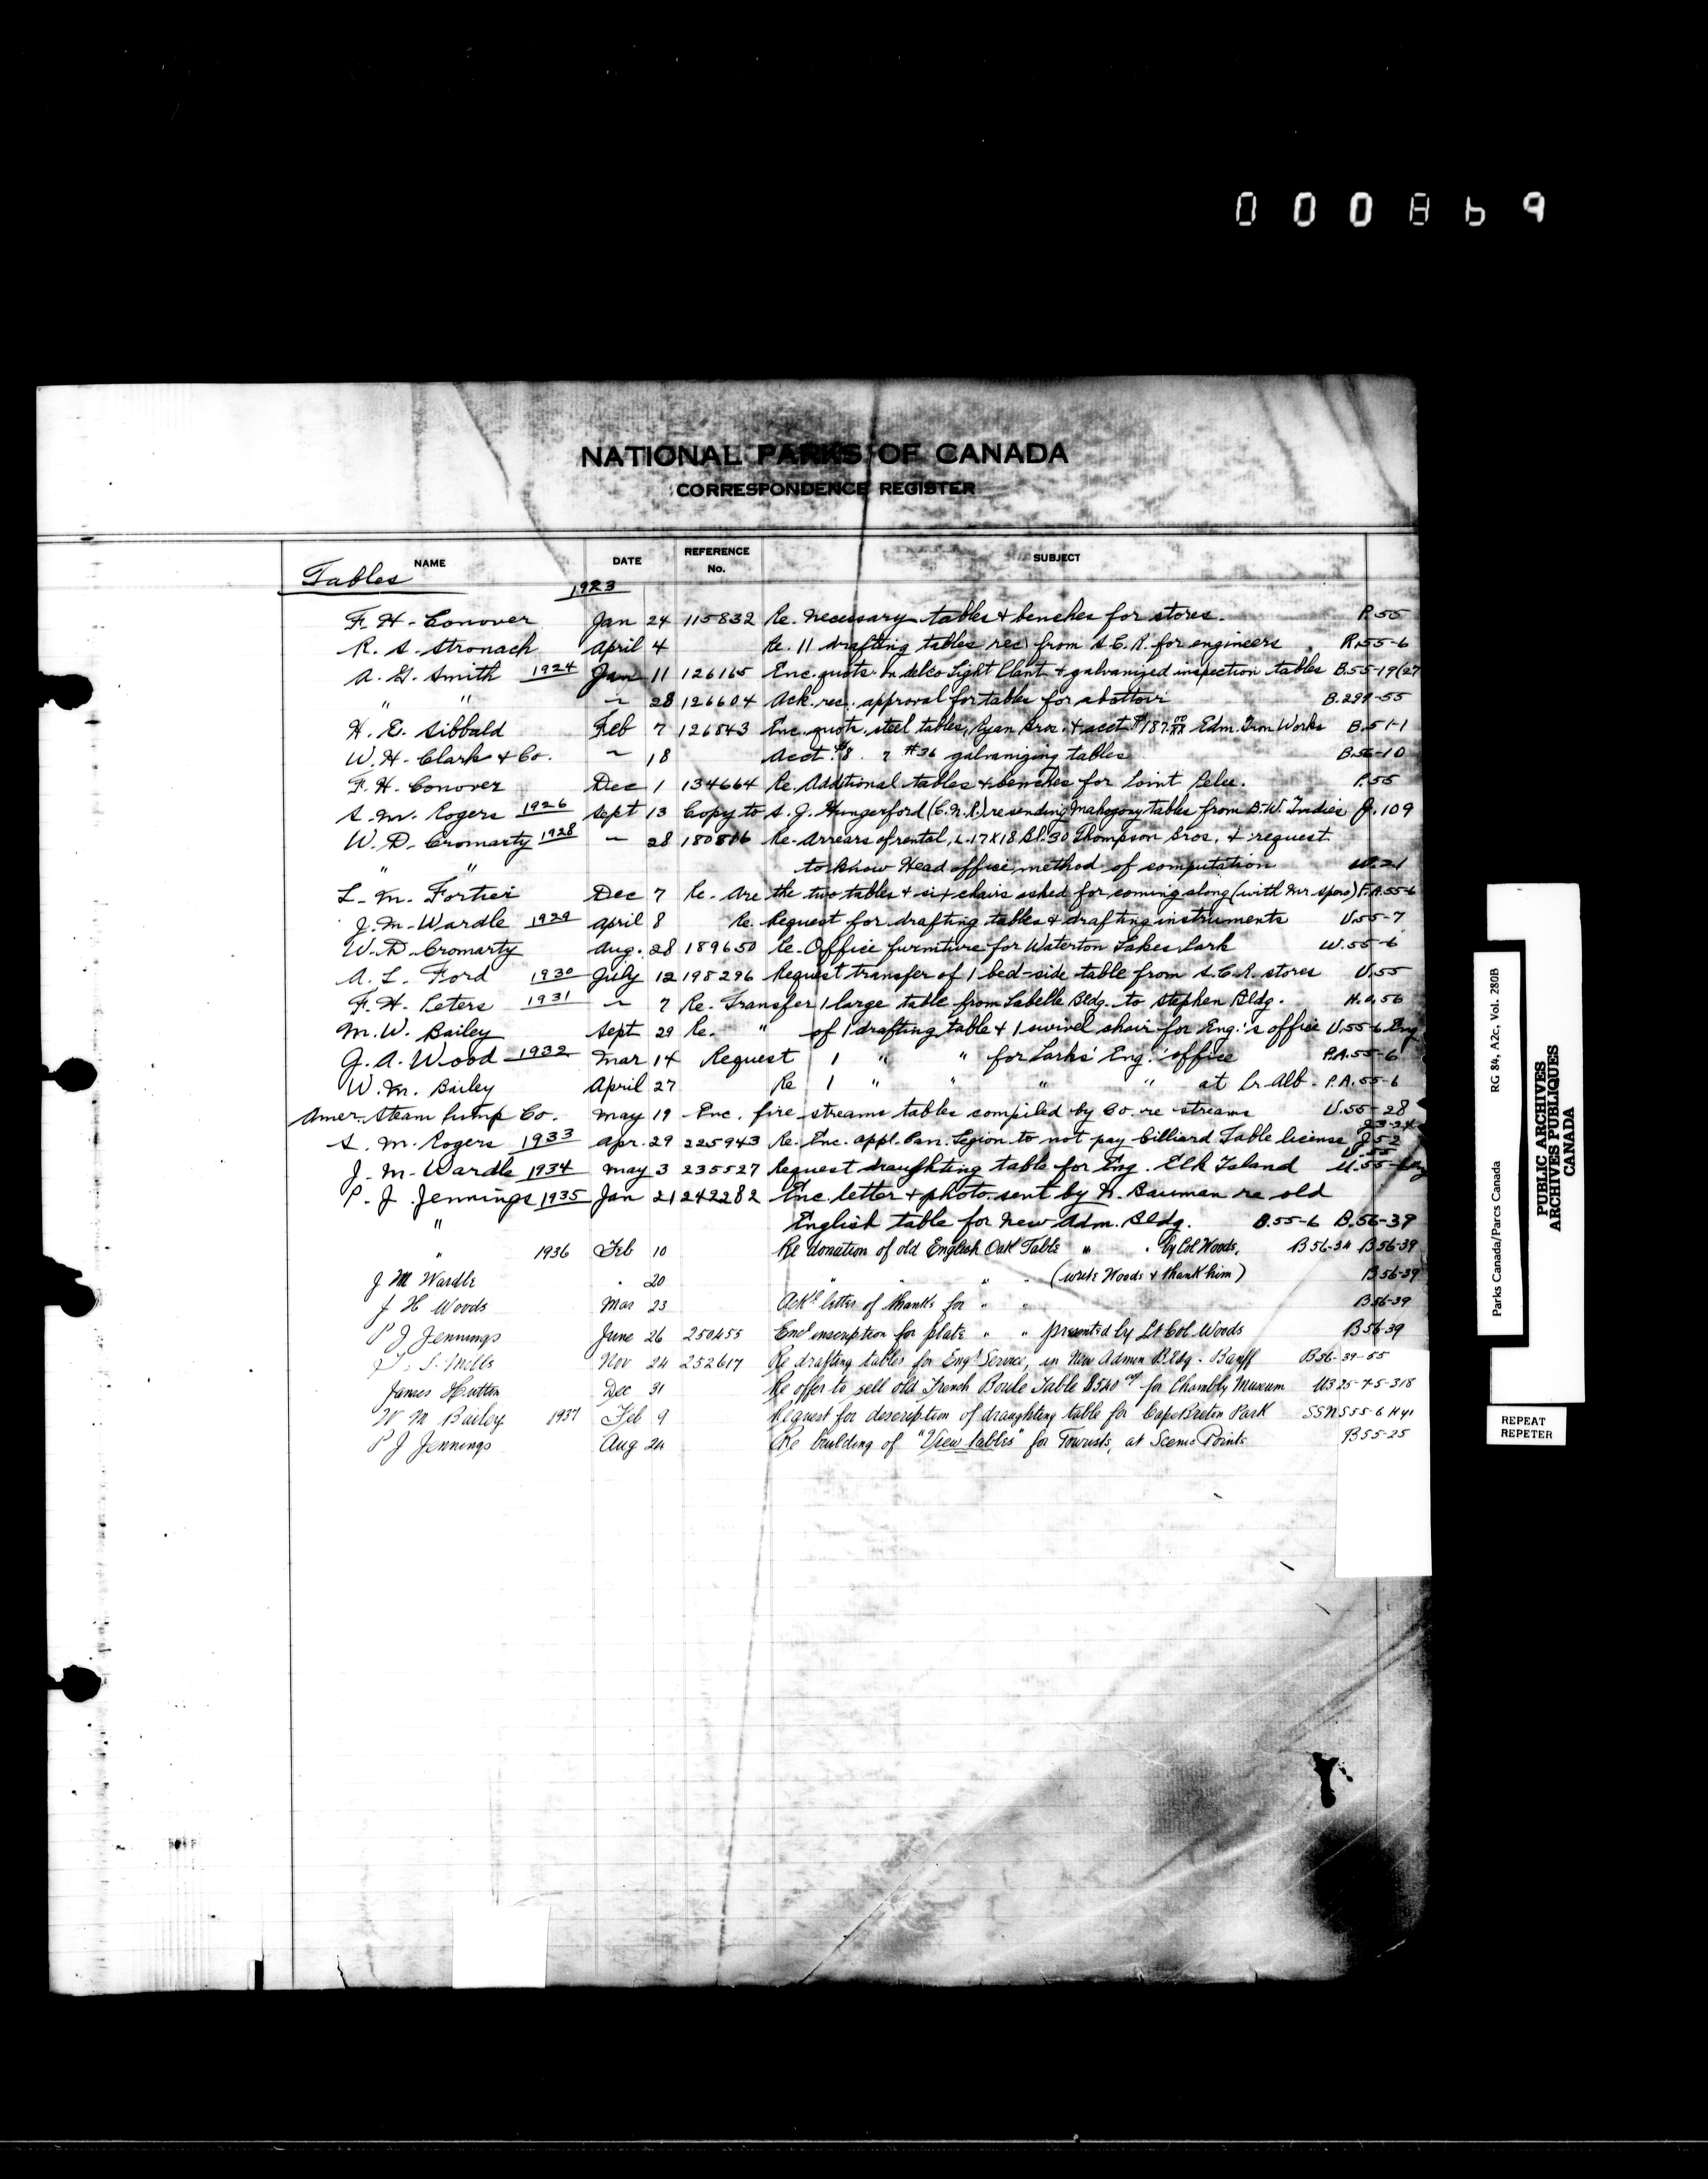 000869
NATIONAL PARKS OF CANADA
CORRESPONDENCE REGISTER
NAME DATE REFERENCE No. SUBJECT
Tables
1923
F. H. Conover Jan 24 115832 Re. necessary tables & benches for stores. P.55
R. S. Stronach April 4 Re. 11 drafting tables rec) from S.C.R. for engineers R.55-6
A. G. Smith 1924 Jan 11 126165 Enc. quots. on delco Light Plant & galvanized inspection tables B.55-19(27
" " ~ 28 126604 Ack. rec. approval for tables for abattoir B.299-55
H. E. Sibbald Feb 7 126843 Enc. quotn. steel tables, Ryan Bros. & acct $187. Edm. Iron Works B.51-1
W. H. Clark & Co. ~ 18 Acct. #36 galvanizing tables B.56-10
F. H. Conover Dec 1 134664 Re. Additional tables & benches for Point Pelee. P.55
S. M. Rogers 1926 Sept 13 Copy to S. J. Hungerford (C.N.R.) re sending Mahogany tables from B.W. Indies J.109
W. D. Cromarty 1928 ~ 28 180886 Re. Arrears of rental, L.17&18 Bl.30 Thompson Bros. & request
" " to know Head office method of computation W.21
L. M. Fortier Dec 7 Re. Are the two tables & six chairs asked for coming along (with Mr. Spero) F.A.55-6
J. M. Wardle 1929 April 8 Re. Request for drafting tables & drafting instruments U.55-7
W. D. Cromarty Aug. 28 189650 Re. Office furniture for Waterton Lakes Park W.55-6
A. L. Ford 1930 July 12 198296 Request transfer of 1 bed-side table from S.C.R. stores U.55
F. H. Peters 1931 ~ 7 Re. Transfer 1 large table from Labelle Bldg. to Stephen Bldg. H.O.56
M. W. Bailey Sept 29 Re. " of 1 drafting table & 1 swivel chair for Eng.'s office U.55-6 Eng
G. A. Wood 1932 Mar 14 Request 1 " " for Parks' Eng.' office P.A.55-6
W. M. Bailey April 27 Re 1 " " " " at Pr. Alb. P.A.55-6
Amer. Steam Pump Co. May 19 Enc. fire streams tables compiled by Co. re streams U.55-28
S. M. Rogers 1933 Apr. 29 225943 Re. Enc. appl. Can. Legion to not pay Billiard Table license J5-2
J. M. Wardle 1934 May 3 235527 Request draughting table for Eng. Elk Island U.55-Eng
P. J. Jennings 1935 Jan 21 242282 Enc. letter & photo. sent by N. Bauman re old
" English table for new Adm. Bldg. B.55-6 B.56-39
" 1936 Feb 10 Re donation of old English Oak Table " " by Col Woods, B56-34 B56-39
J M Wardle " 20 " " " " (write Woods & thank him) B56-39
J H Woods Mar 23 Ack'g letter of thanks for " " B56-39
P J Jennings June 26 250455 Encl inscription for plate " " presented by Lt Col Woods B56-39
T. S. Mills Nov 24 252617 Re drafting tables for Eng'g Service, in New Admin Bldg. Banff B56-39-55
James Hutton Dec 31 Re offer to sell old French Boule Table $540 for Chambly Museum
W M Bailey 1937 Feb 9 Request for description of draughting table for Cape Breton Park
P J Jennings Aug 24 Re building of "View tables" for Tourists, at Scenic Points B55-25
Parks Canada/Parcs Canada RG 84, A2c, Vol. 280B
PUBLIC ARCHIVES
ARCHIVES PUBLIQUES
CANADA
REPEAT
REPETER